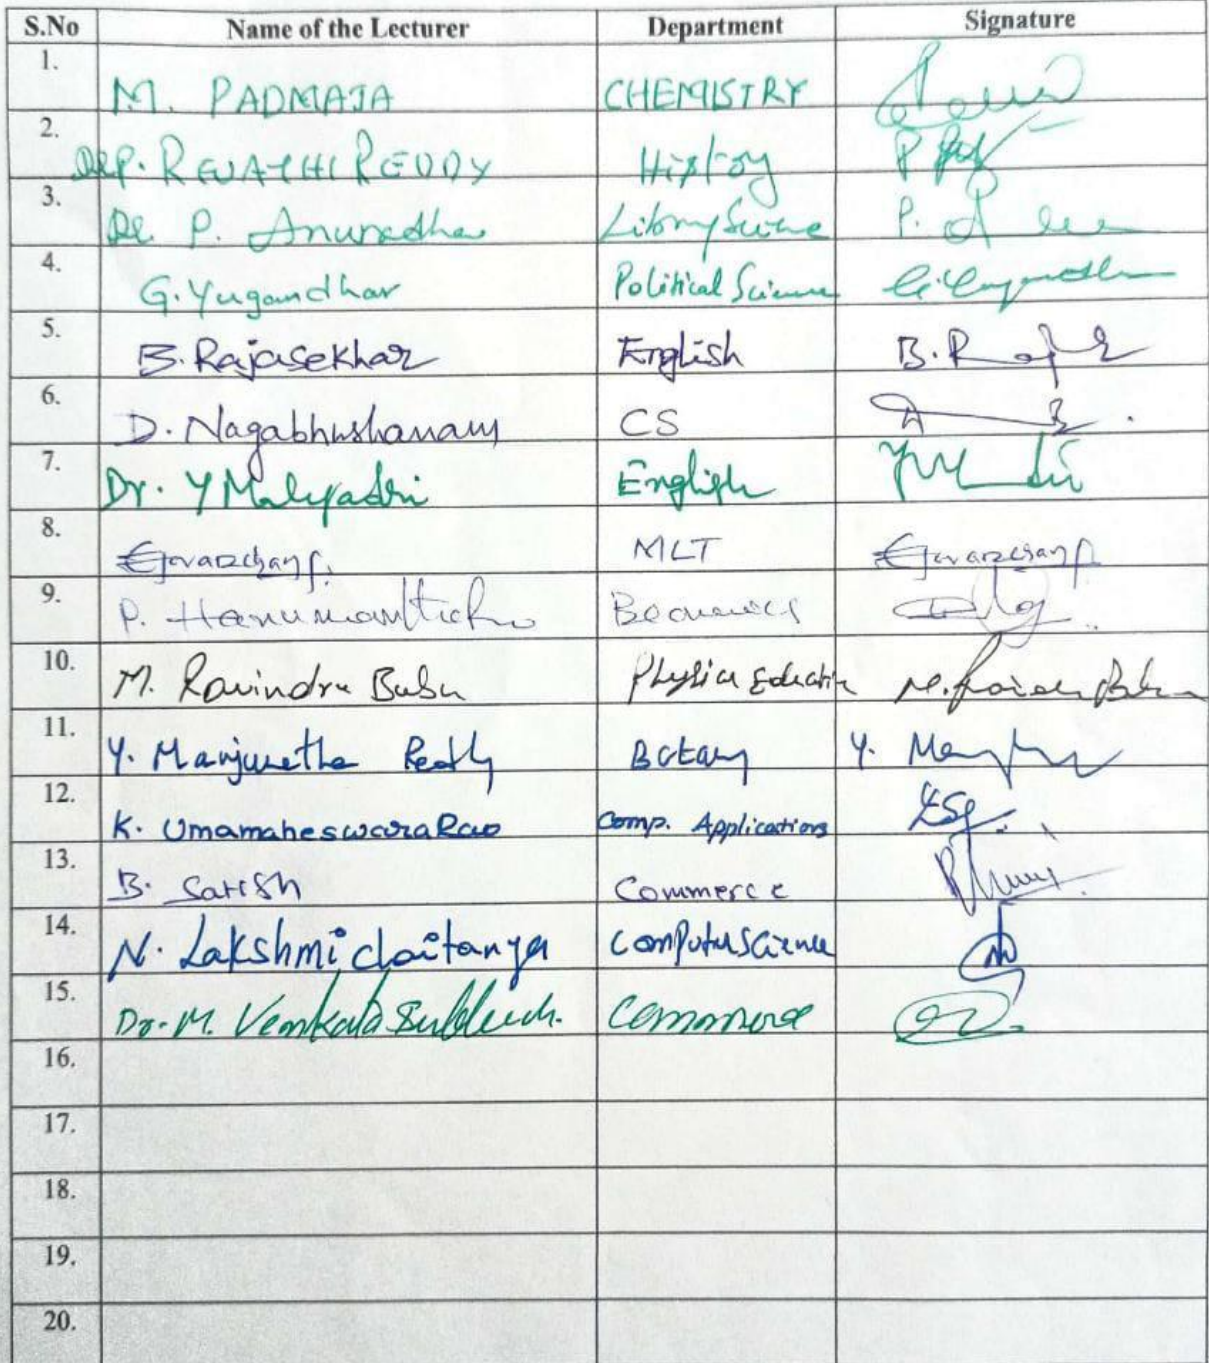 S.No Name of the Lecturer Department Signature
1. M. PADMAJA CHEMISTRY
2. Dr P. REVATHI REDDY History P
3. Dr. P. Anuradha Library Science P.
4. G. Yugandhar Political Science G. Yugandhar
5. B. Rajasekhar English B. R
6. D. Nagabhushanam CS
7. Dr. Y Malyadri English
8. MLT
9. P. Economics
10. M. Ravindra Babu Physical Education M.
11. Y. Manjunatha Reddy Botany Y.
12. K. UmamaheswaraRao Comp. Applications
13. B. Satish Commerce
14. N. Lakshmi chaitanya Computer Science
15. Dr. M. Venkata Subbaiah. Commerce
16.
17.
18.
19.
20.